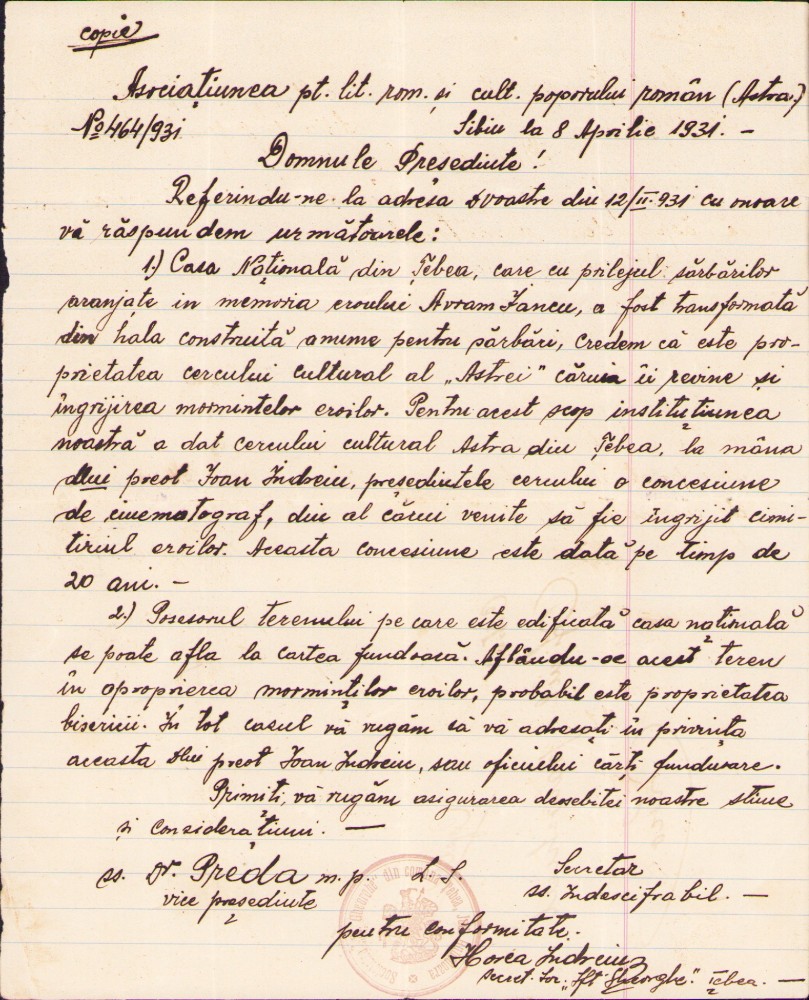 copie
Asociațiunea pt. lit. rom. și cult. poporului român (Astra)
No 464/931 Sibiu la 8 Aprilie 1931. –
Domnule Președinte!
Referindu-ne la adresa Dvoastre din 12/II-931 cu onoare
vă răspundem următoarele:
1.) Casa Națională din Țebea, care cu prilejul sărbărilor
aranjate in memoria eroului Avram Iancu, a fost transformată
din hala construită anume pentru sărbări, credem că este pro-
prietatea cercului cultural al „Astrei" căruia îi revine și
îngrijirea mormintelor eroilor. Pentru acest scop instituțiunea
noastră a dat cercului cultural Astra din Țebea, la mâna
dlui preot Ioan Indreiu, președintele cercului o concesiune
de cinematograf, din al cărui venite să fie îngrijit cimi-
tiriul eroilor. Aceasta concesiune este dată pe timp de
20 ani. –
2.) Posesorul terenului pe care este edificată casa națională
se poate afla la cartea funduară. Aflându-se acest teren
în apropierea morminților eroilor, probabil este proprietatea
bisericii. În tot casul vă rugăm să vă adresați în privința
aceasta Dlui preot Ioan Indreiu, sau oficiului cărți funduare.
Primiți, vă rugăm asigurarea deosebitei noastre stime
și considerațiuni. –
ss. Dr. Preda m.p. L. S. Secretar
vice președinte ss. Indescifrabil. –
pentru conformitate.
Horea Indreiu
secret. Soc. „Sft Gheorghe". Țebea. –